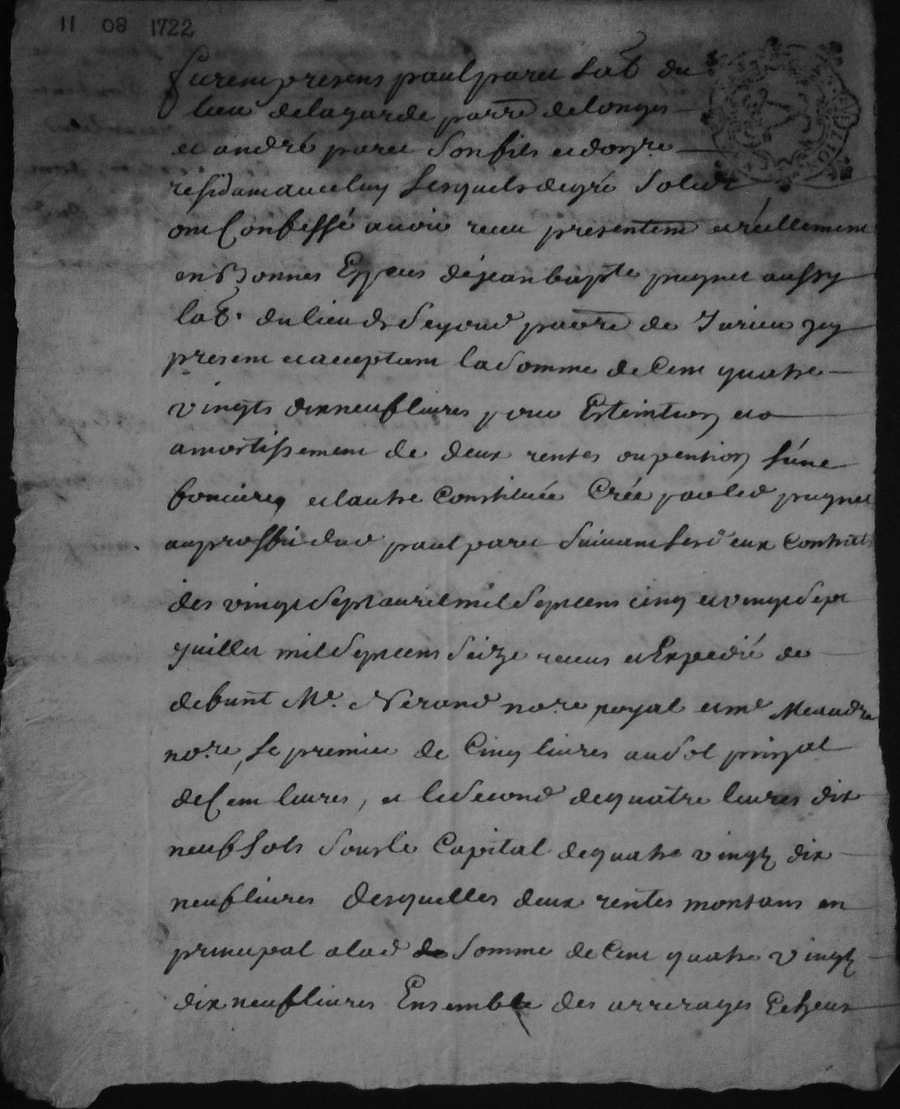 11 08 1722
furent presens paul paret lab. du
lieu de lagarde parre de longes
et andré paret son fils et donre
residant avec luy lesquels de gré solidr
ont Confessé avoir receu presentemt et réellement
en Bonnes Especes de jean bapte pugnet aussy
lab. du lieu de Seyoud parre de Jurieu icy
present et acceptant la Somme de Cent quatre
vingts dix neuf livres pour Extention et
amortissement de deux rentes ou pention l'une
fonciere et lautre Constituée Créé par led pugnet
au proffit dud paul paret Suivant les d eux Contrats
des vingt Sept avril mil Sept cens cinq et vingt Sept
juillet mil Sept cens Seize receus et Expedié de
defunt Me. Nerand nore royal et me Meaudre
nore, le premier de Cinq livres au sol prinpal
de Cent livres, et le Second de quatre livres dix
neuf sols Sous le Capital de quatre vingt dix
neuf livres desquelles deux rentes montans en
principal a lad de Somme de Cent quatre vingt
dix neuf livres Ensemble des arrerages Echeus